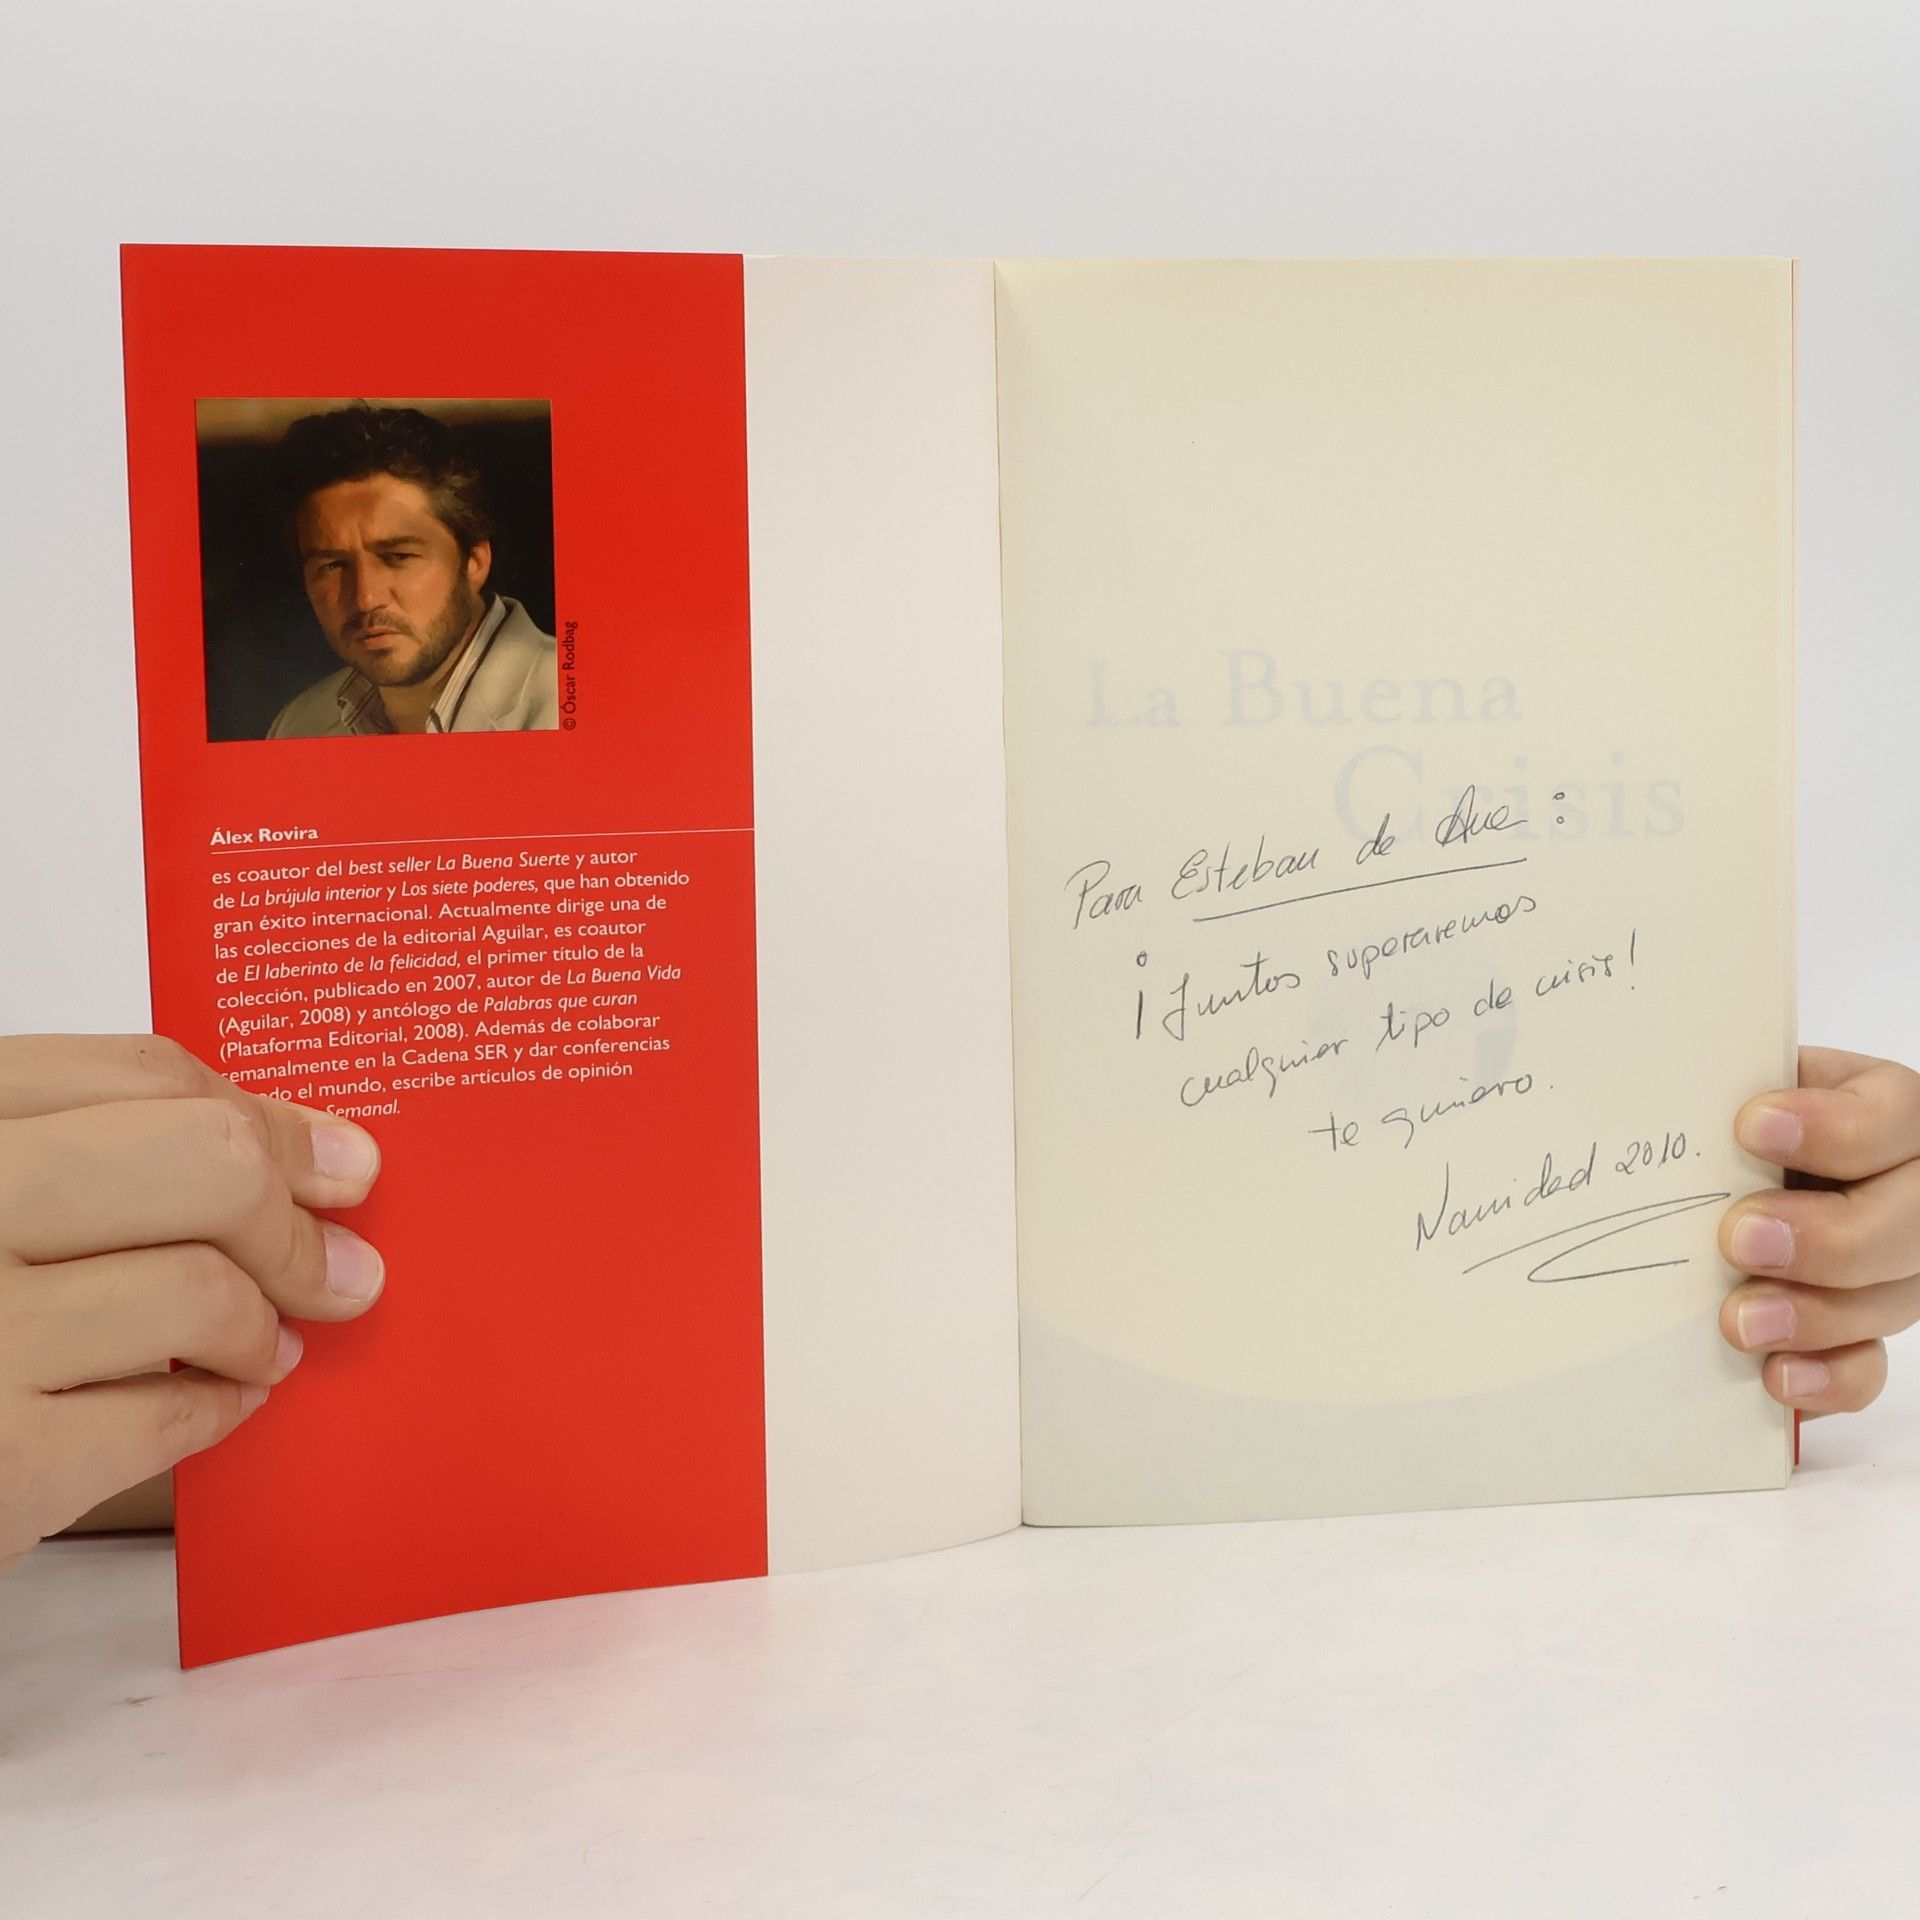 © Óscar Rodbag
Álex Rovira
es coautor del best seller La Buena Suerte y autor
de La brújula interior y Los siete poderes, que han obtenido
gran éxito internacional. Actualmente dirige una de
las colecciones de la editorial Aguilar, es coautor
de El laberinto de la felicidad, el primer título de la
colección, publicado en 2007, autor de La Buena Vida
(Aguilar, 2008) y antólogo de Palabras que curan
(Plataforma Editorial, 2008). Además de colaborar
semanalmente en la Cadena SER y dar conferencias
el mundo, escribe artículos de opinión
Semanal.
La Buena
Crisis
Para Esteban de Ana :
¡Juntos superaremos
cualquier tipo de crisis!
te quiero.
Navidad 2010.